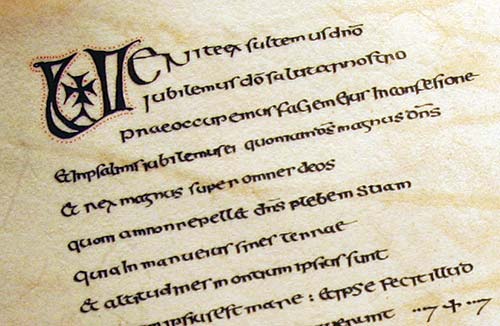 VENITE exsultemus dnō
Iubilemus dō salutari nostro
praeoccupemus faciem eius in confesione
Et inpsalmis iubilemus ei quoniam d̄s magnus dn̄s
et rex magnus super omnes deos
quoniam non repellet dn̄s plebem suam
quia in manu eius fines terrae
et altitudines montium ipsius sunt
ipsius est mare : et ipse fecit illud